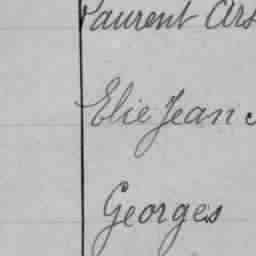 Laurent Ars
Elie Jean
Georges